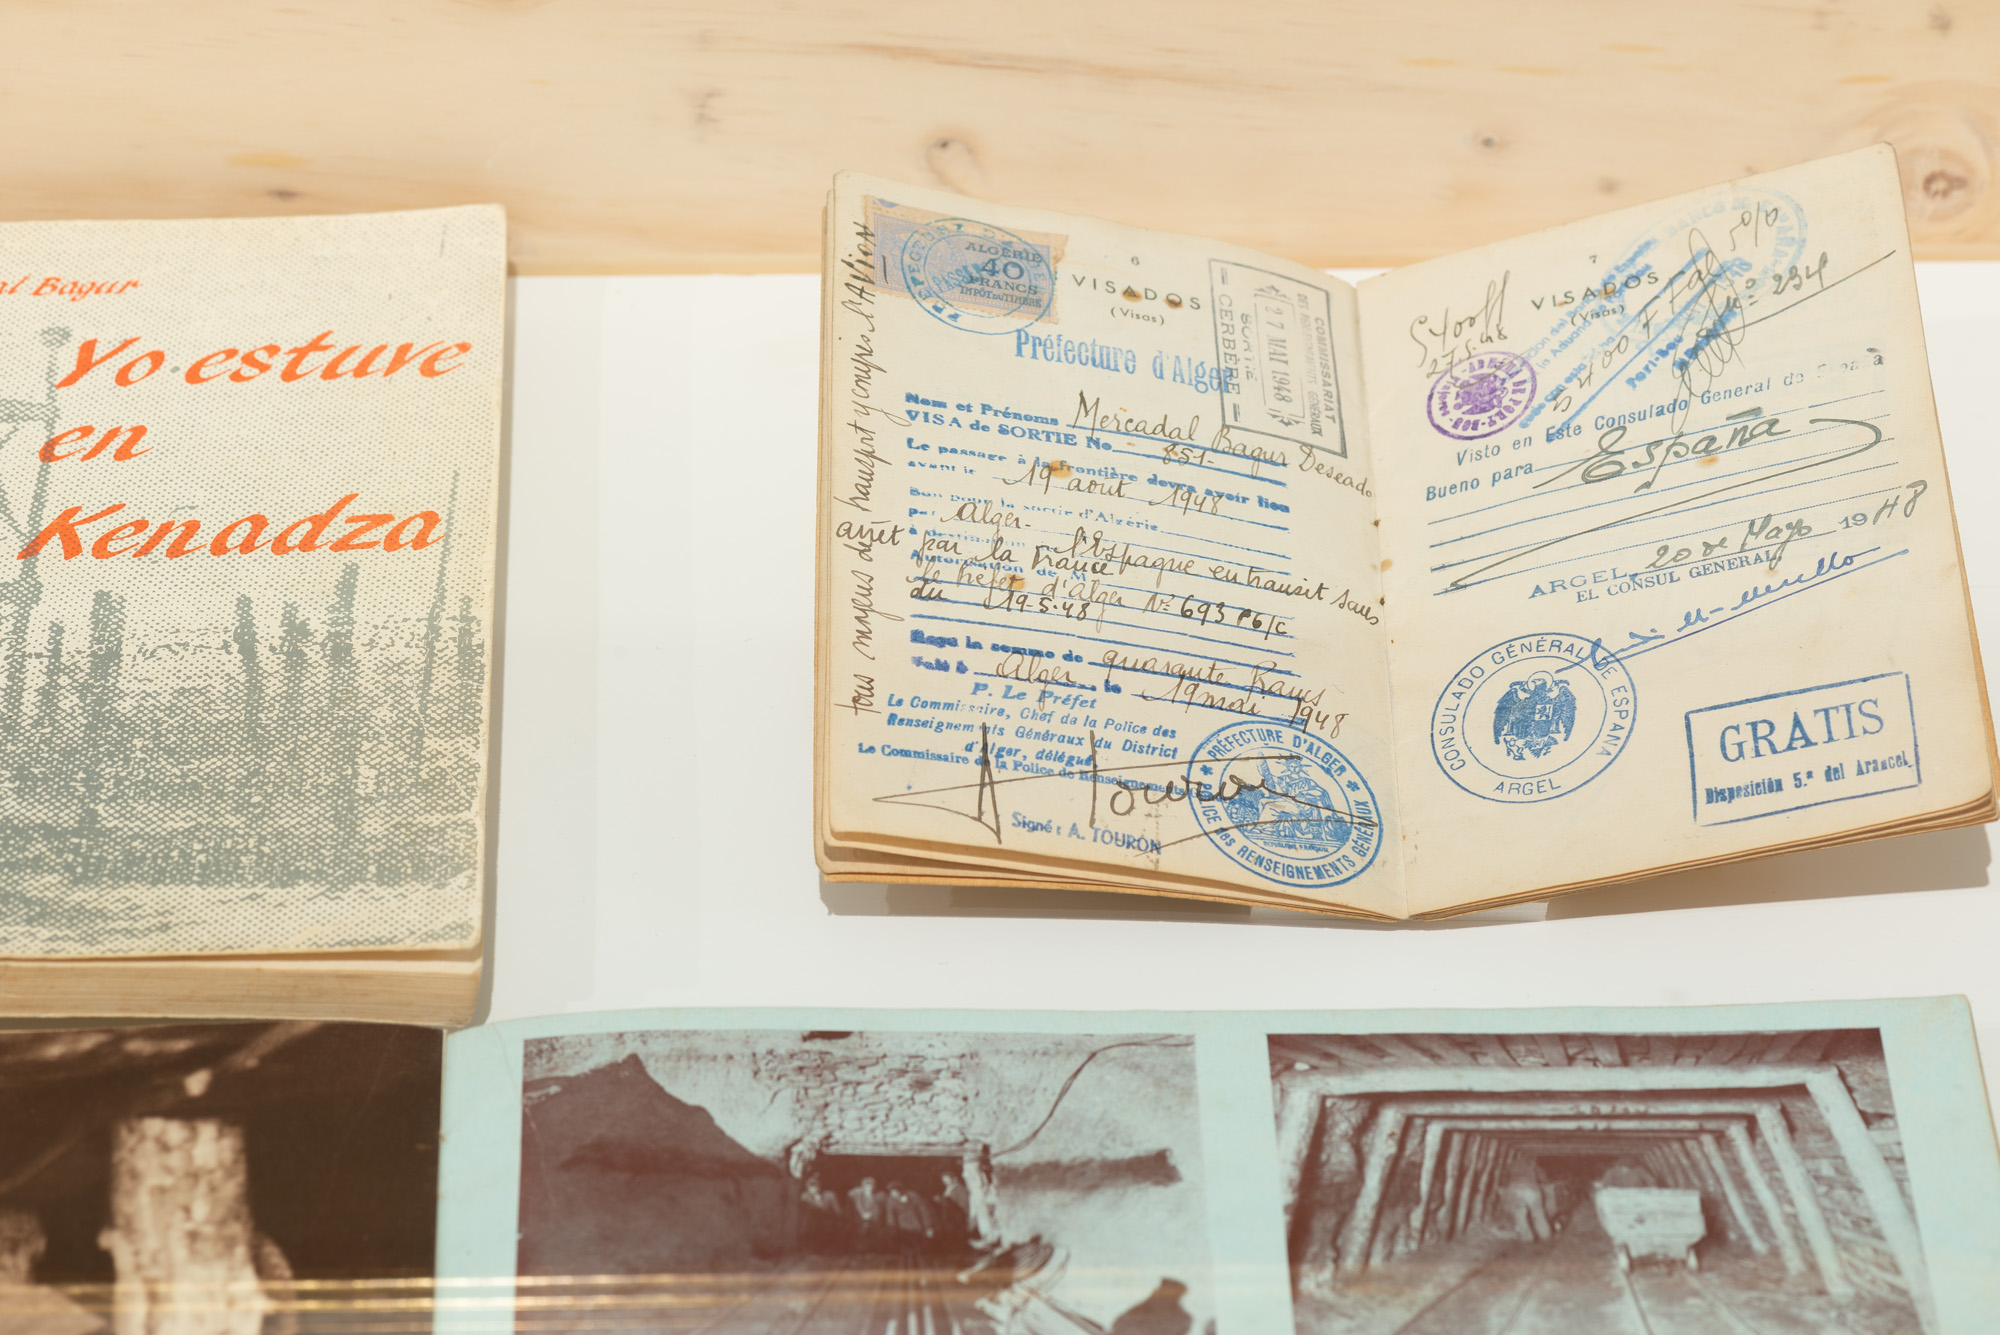 al Bagur
Yo estuve
en
Kenadza
6
VISADOS
(Visas)
ALGÉRIE
40
FRANCS
IMPÔT DU TIMBRE
COMMISSARIAT
DES RENSEIGNEMENTS GÉNÉRAUX
27 MAI 1948
SORTIE
CERBÈRE
Préfecture d'Alger
Nom et Prénoms Mercadal Bagur Deseado
VISA de SORTIE No 851-
Le passage à la frontière devra avoir lieu
avant le 19 aout 1948
Bon pour la sortie d'Algérie
par Alger-
à destination de l'Espagne en transit sans
arrêt par la France
Autorisation de M
le préfet d'Alger Nº 693 PG/C
du 19-5-48
Reçu la somme de quarante francs
Fait à Alger le 19 mai 1948
P. Le Préfet
Le Commissaire, Chef de la Police des
Renseignements Généraux du District
d'Alger, délégué
Le Commissaire de la Police de Renseignements
Signé : A. TOURON
PRÉFECTURE D'ALGER
POLICE des RENSEIGNEMENTS GÉNÉRAUX
tous moyens de transport y compris l'AVION
7
VISADOS
(Visas)
27-5-48
5400 F
Nº 234
Visto en Este Consulado General de España
Bueno para España
ARGEL, 20 de Mayo 1948
EL CONSUL GENERAL,
CONSULADO GENERAL DE ESPAÑA
ARGEL
GRATIS
Disposición 5.ª del Arancel